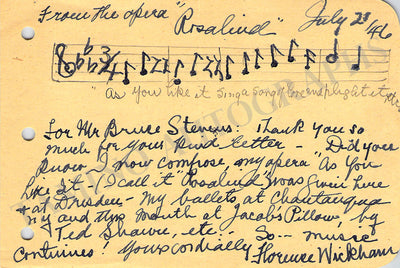 From the opera "Rosalind" July 23/46
"As you like it Sing a Song of love and
For Mr Bruce Stevens: Thank you so
much for your kind letter - Did you
know I now compose, my opera "As You
Like It" (I call it "Rosalind") was given here
+ at Dresden - My ballets, at Chautauqua
NY and this month at Jacob's Pillow, by
Ted Shawn, etc. - So - music
continues! Yours cordially
Florence Wickham